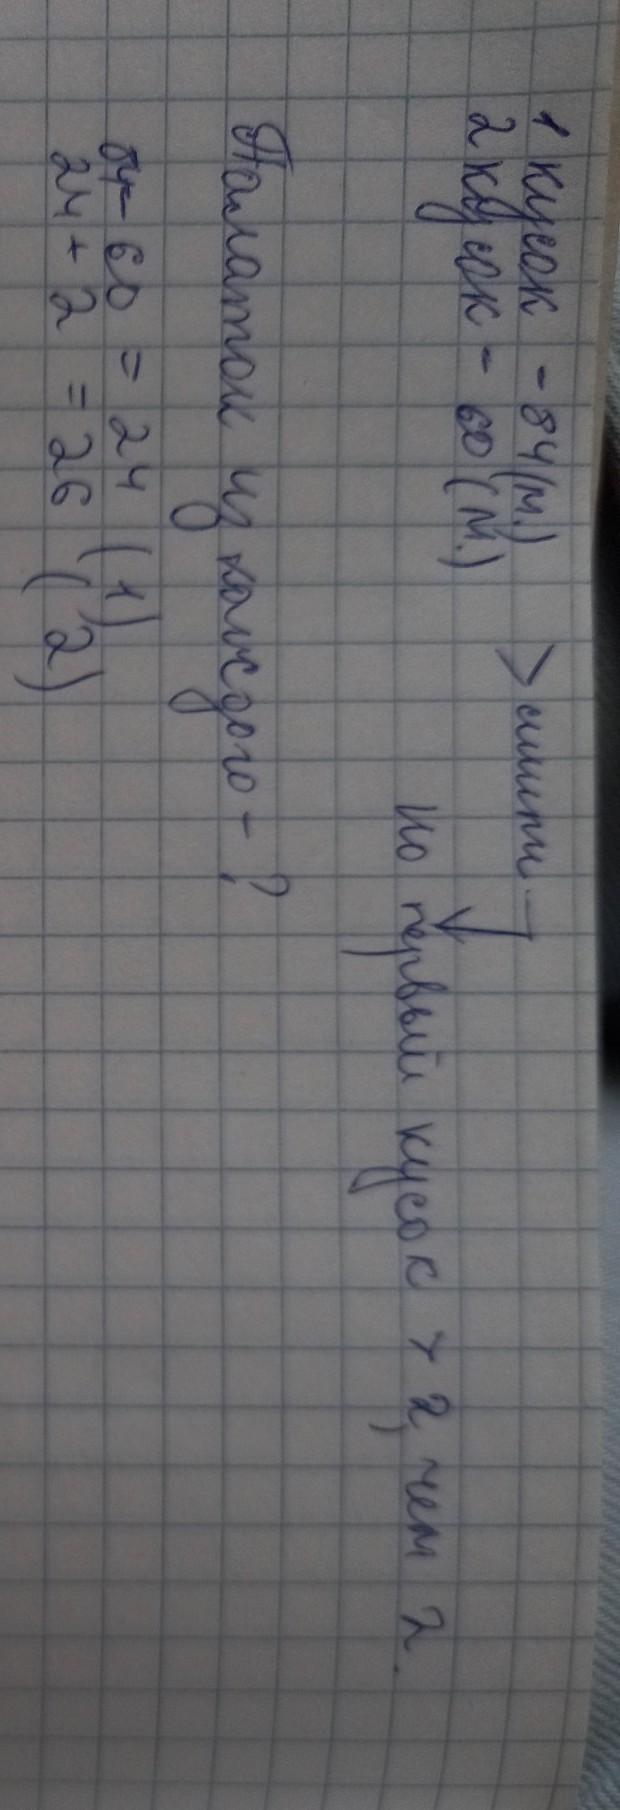 1 кусок - 84 (м.)
2 кусок - 60 (м.)
> сшили
но первый кусок > 2, чем 2.
Палаток из каждого - ?
84 - 60 = 24 (1)
24 + 2 = 26 (2)